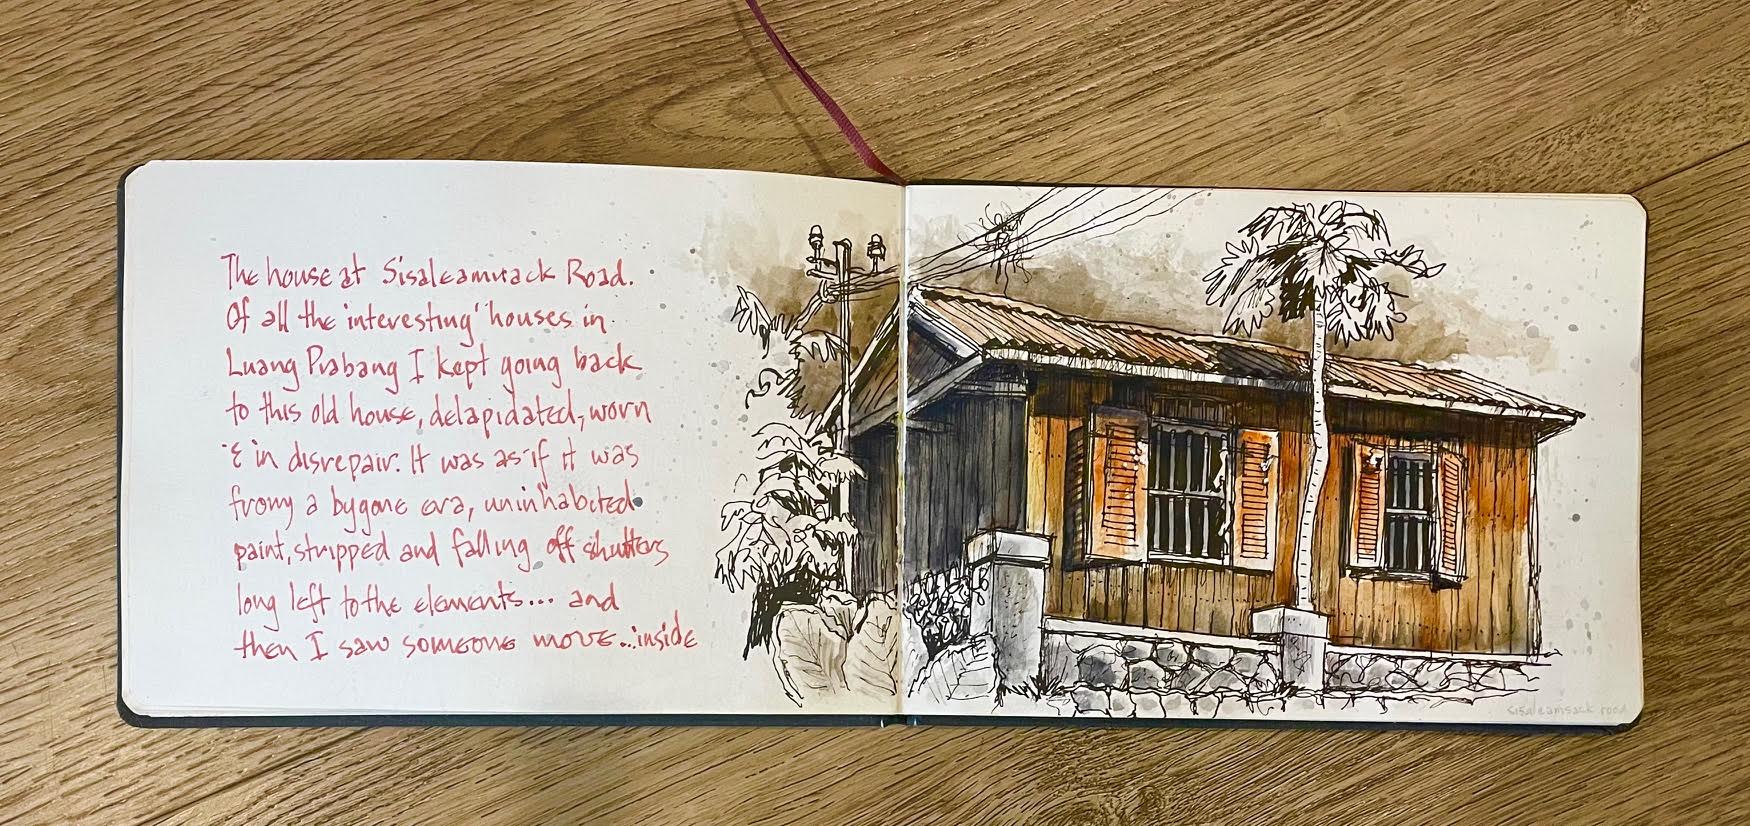 The house at Sisaleamsack Road.
Of all the 'interesting' houses in
Luang Prabang I kept going back
to this old house, delapidated, worn
& in disrepair. It was as if it was
from a bygone era, uninhabited
paint, stripped and falling off shutters
long left to the elements... and
then I saw someone move...inside
Sisaleamsack road